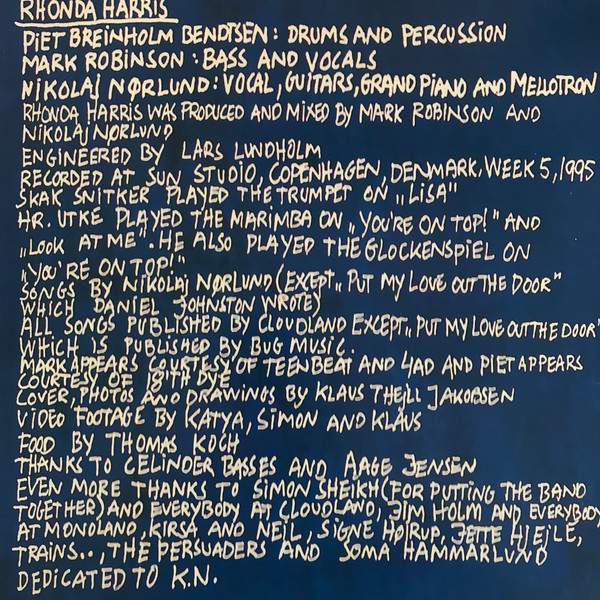 RHONDA HARRIS
PIET BREINHOLM BENDTSEN: DRUMS AND PERCUSSION
MARK ROBINSON: BASS AND VOCALS
NIKOLAJ NØRLUND: VOCAL, GUITARS, GRAND PIANO AND MELLOTRON
RHONDA HARRIS WAS PRODUCED AND MIXED BY MARK ROBINSON AND
NIKOLAJ NØRLUND
ENGINEERED BY LARS LUNDHOLM
RECORDED AT SUN STUDIO, COPENHAGEN, DENMARK, WEEK 5, 1995
SKAK SNITKER PLAYED THE TRUMPET ON „LISA"
HR. UTKE PLAYED THE MARIMBA ON „YOU'RE ON TOP!" AND
„LOOK AT ME". HE ALSO PLAYED THE GLOCKENSPIEL ON
„YOU'RE ON TOP!"
SONGS BY NIKOLAJ NØRLUND (EXCEPT „PUT MY LOVE OUT THE DOOR"
WHICH DANIEL JOHNSTON WROTE)
ALL SONGS PUBLISHED BY CLOUDLAND EXCEPT „PUT MY LOVE OUT THE DOOR"
WHICH IS PUBLISHED BY BUG MUSIC.
MARK APPEARS COURTESY OF TEENBEAT AND 4AD AND PIET APPEARS
COURTESY OF 18'TH DYE
COVER, PHOTOS AND DRAWINGS BY KLAUS THEJLL JAKOBSEN
VIDEO FOOTAGE BY KATYA, SIMON AND KLAUS
FOOD BY THOMAS KOCH
THANKS TO CELINDER BASSES AND AAGE JENSEN
EVEN MORE THANKS TO SIMON SHEIKH (FOR PUTTING THE BAND
TOGETHER) AND EVERYBODY AT CLOUDLAND, JIM HOLM AND EVERYBODY
AT MONOLAND, KIRSA AND NEIL, SIGNE HØIRUP, JETTE HJEJLE,
TRAINS.., THE PERSUADERS AND SOMA HAMMARLUND
DEDICATED TO K.N.